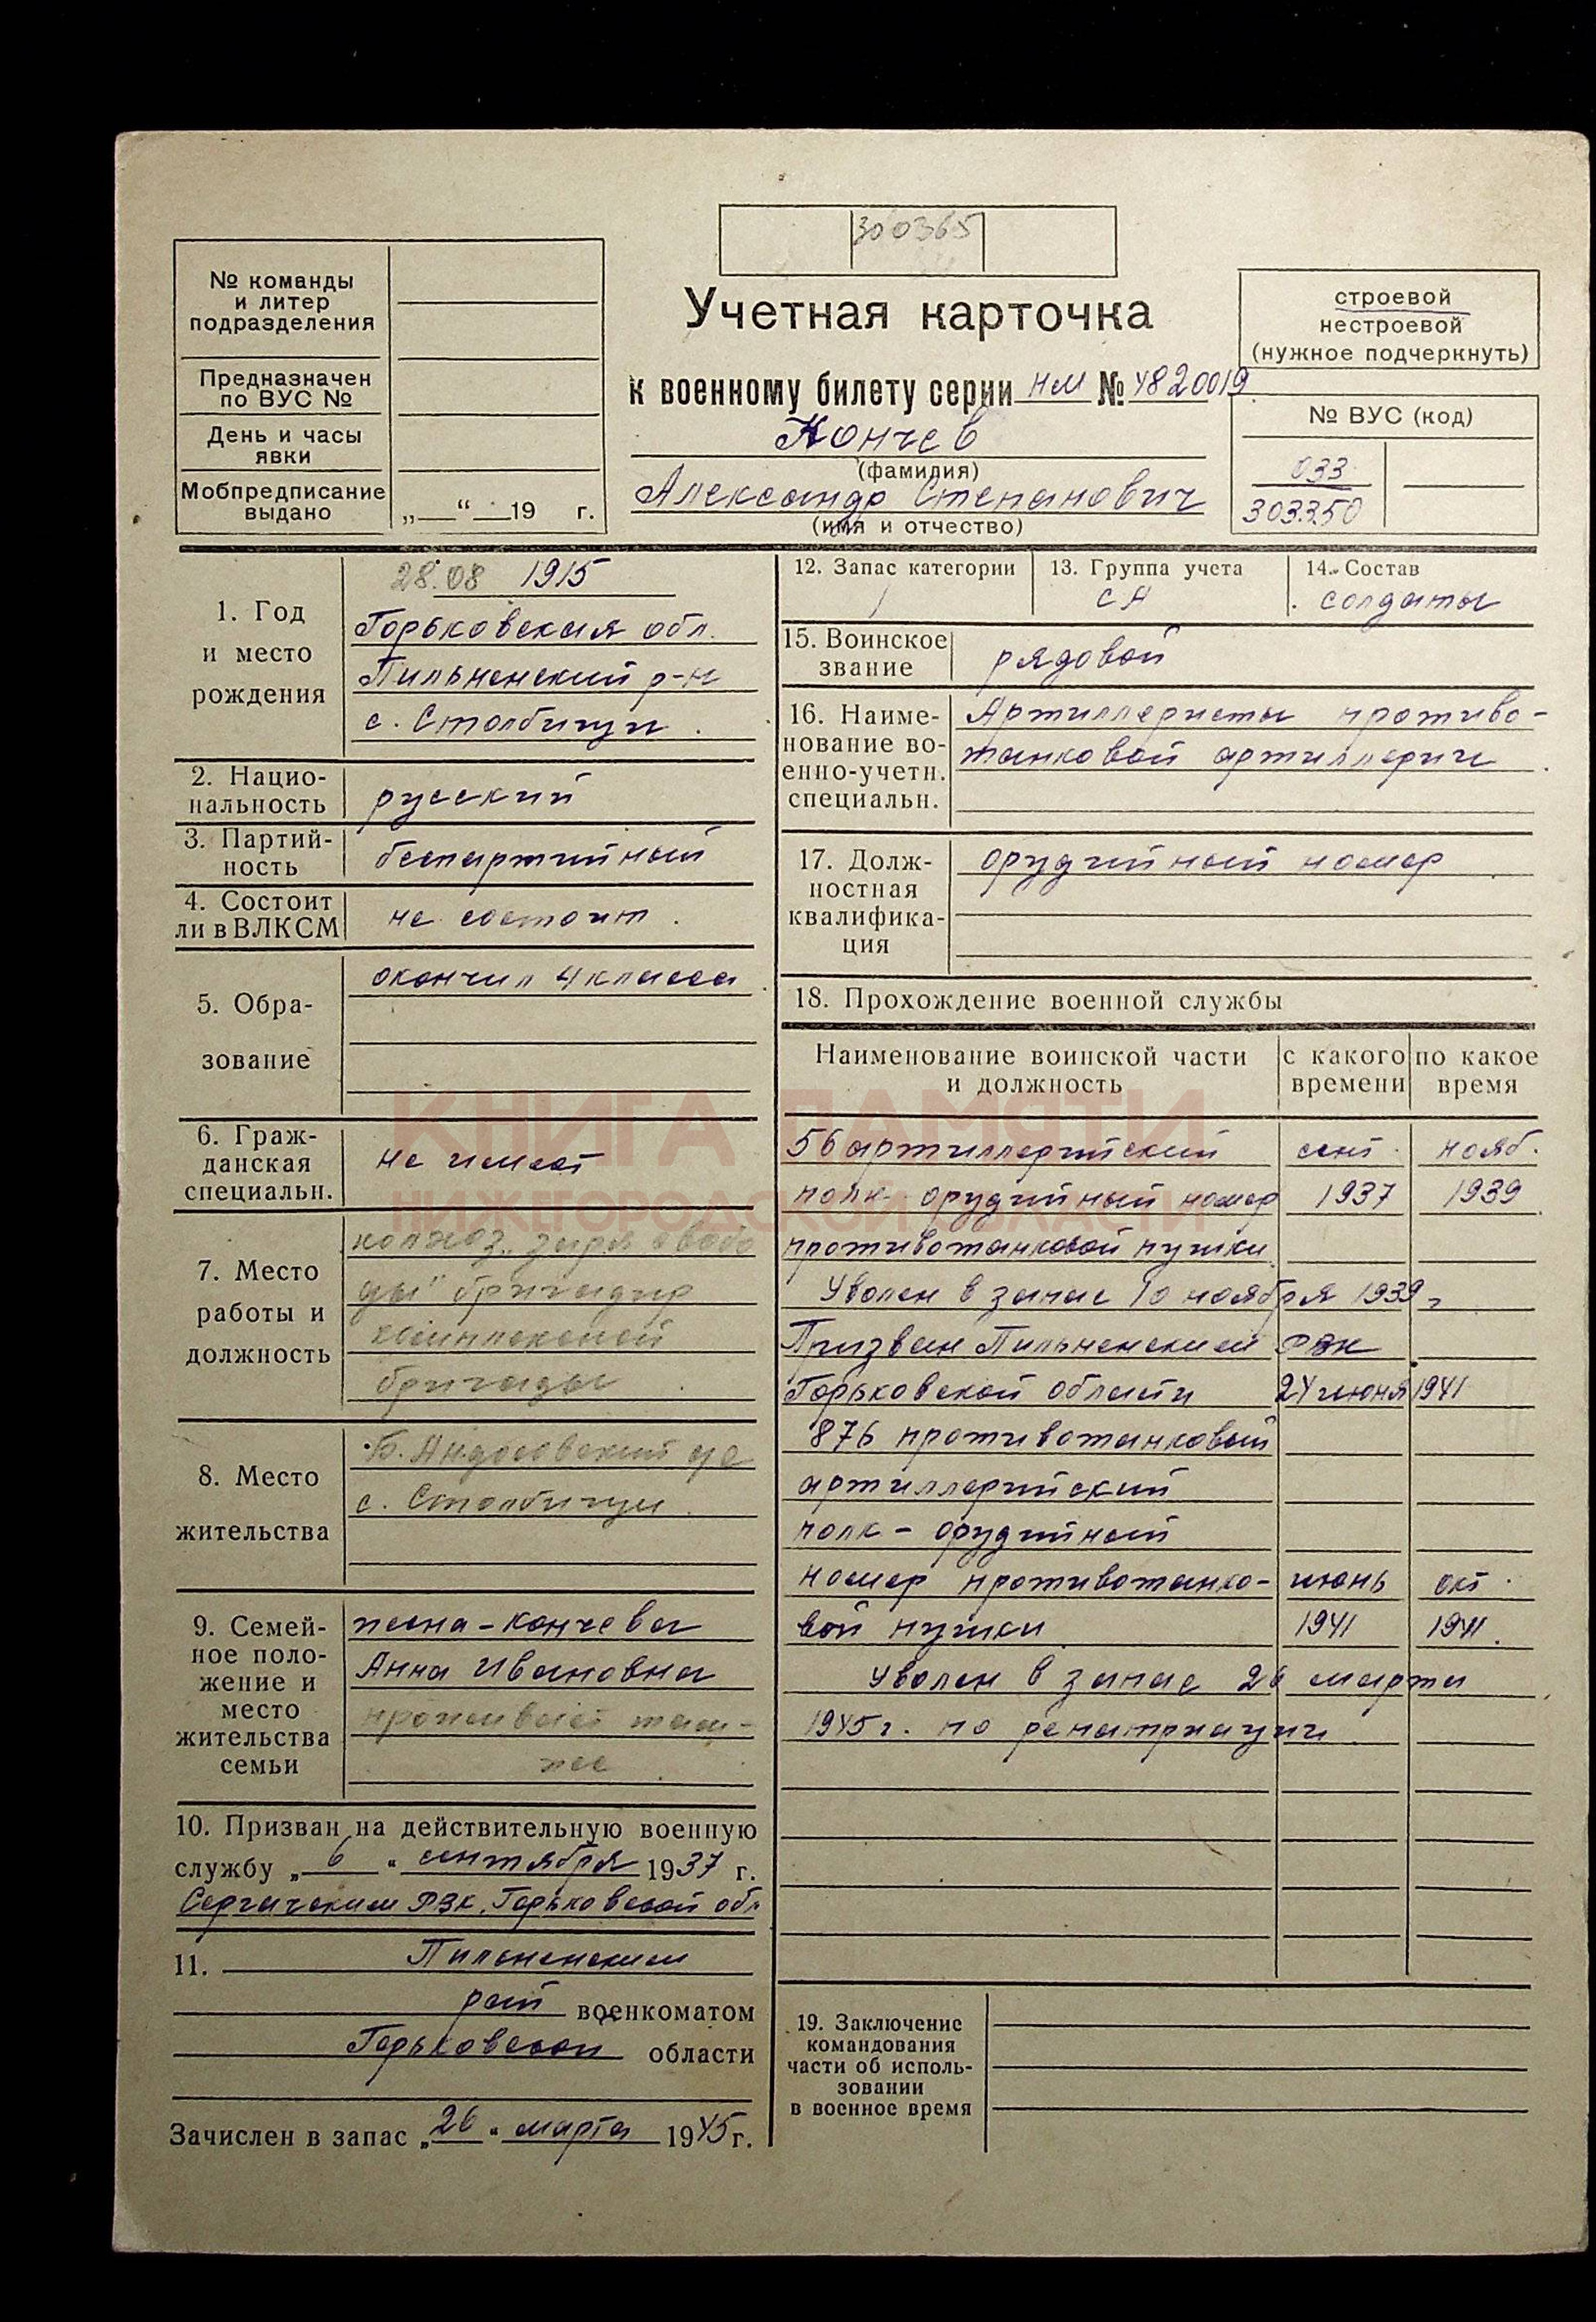 300365
№ команды
и литер
подразделения
Предназначен
по ВУС №
День и часы
явки
Мобпредписание
выдано
„ “ 19 г.
Учетная карточка
к военному билету серии НМ № 4820019
Кончев
(фамилия)
Александр Степанович
(имя и отчество)
строевой
нестроевой
(нужное подчеркнуть)
№ ВУС (код)
033
303350
1. Год
и место
рождения
28.08 1915
Горьковская обл.
Пильненский р-н
с. Столбищи.
2. Нацио-
нальность
русский
3. Партий-
ность
беспартийный
4. Состоит
ли в ВЛКСМ
не состоит.
5. Обра-
зование
окончил 4 класса
6. Граж-
данская
специальн.
не имеет
7. Место
работы и
должность
колхоз „заря свобо
ды" бригадир
бригады
8. Место
жительства
Б. Андосовский с
с. Столбищи.
9. Семей-
ное поло-
жение и
место
жительства
семьи
жена - Кончева
Анна Ивановна
проживает там-
же
10. Призван на действительную военную
службу „6“ сентября 1937 г.
Сергачским РВК, Горьковской обл
11. Пильненским
рай военкоматом
Горьковской области
Зачислен в запас „26“ марта 1945 г.
12. Запас категории
1
13. Группа учета
СА
14. Состав
солдаты
15. Воинское
звание
рядовой
16. Наиме-
нование во-
енно-учетн.
специальн.
Артиллеристы противо-
танковой артиллерии
17. Долж-
ностная
квалифика-
ция
орудийный номер
18. Прохождение военной службы
Наименование воинской части
и должность
с какого
времени
по какое
время
56 артиллерийский сент. нояб.
полк орудийный номер 1937 1939
противотанковой пушки
Уволен в запас 10 ноября 1939 г
Призван Пильненским РВК
Горьковской области 24 июня 1941
876 противотанковый
артиллерийский
полк - орудийный
номер противотанко- июнь окт.
вой пушки 1941 1941.
Уволен в запас 26 марта
1945 г. по репатриации
19. Заключение
командования
части об исполь-
зовании
в военное время
КНИГА ПАМЯТИ
НИЖЕГОРОДСКОЙ ОБЛАСТИ